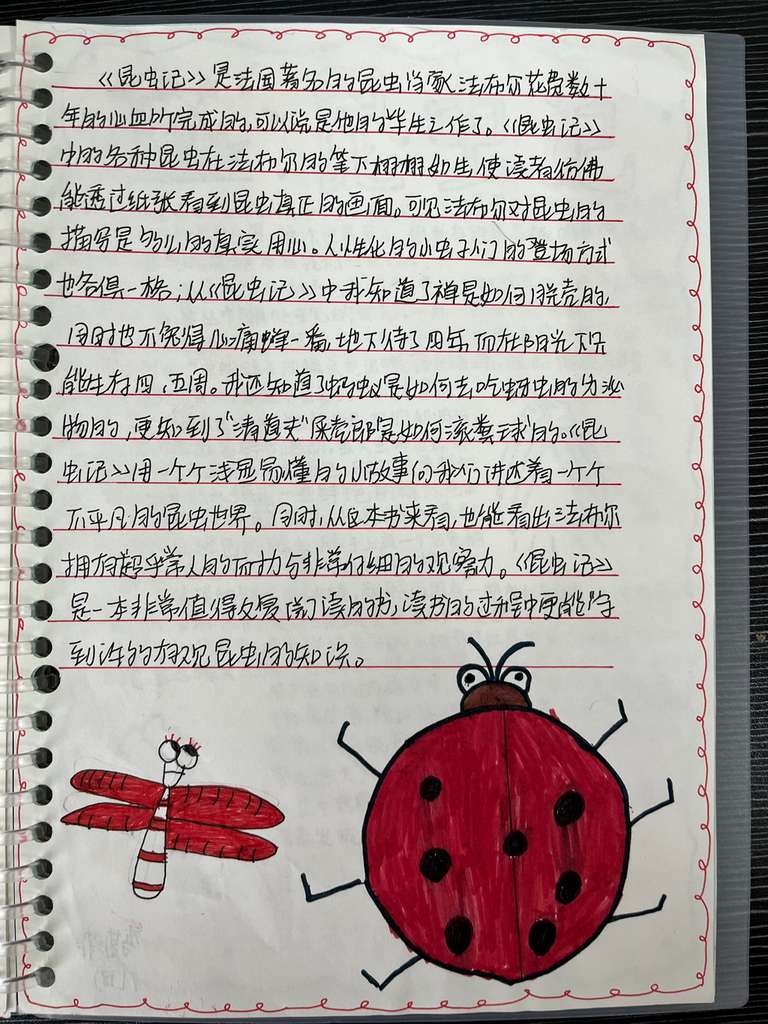 《昆虫记》是法国著名的昆虫学家法布尔花费数十
年的心血所完成的,可以说是他的毕生之作了。《昆虫记》
中的各种昆虫在法布尔的笔下栩栩如生,使读者仿佛
能透过纸张看到昆虫真正的画面。可见法布尔对昆虫的
描写是多么的真实,用心。人性化的小虫子们的登场方式
也各俱一格;从《昆虫记》中我知道了禅是如何脱壳的,
同时也不免得心痛蝉一番,地下待了四年,而在阳光下只
能生存四、五周。我还知道了蚂蚁是如何去吃蚜虫的分泌
物的,更知到了“清道夫”屎壳郎是如何滚粪球的。《昆
虫记》用一个个浅显易懂的小故事向我们讲述着一个个
不平凡的昆虫世界。同时,从这本书来看,也能看出法布尔
拥有超乎常人的耐力与非常仔细的观察力。《昆虫记》
是一本非常值得反复阅读的书,读书的过程中更能学
到许多有关昆虫的知识。